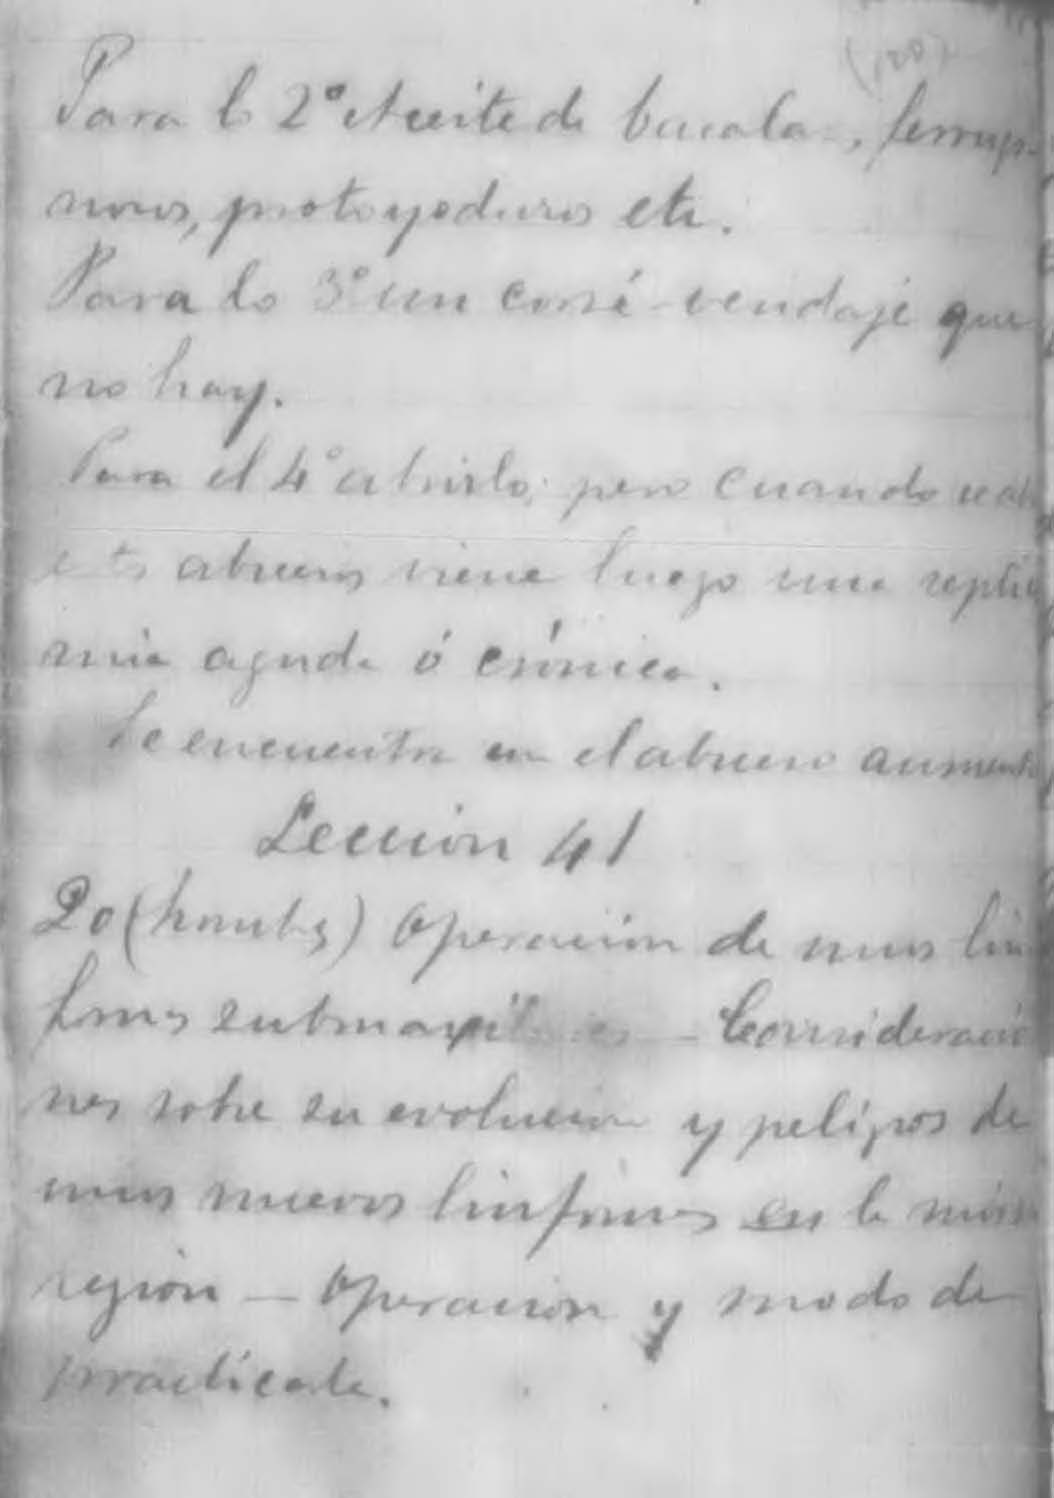 (100)
Para lo 2º Aceite de bacalao, ferrugi-
nosos, protoyoduros etc.
Para lo 3º un corsé-vendaje que
no hay.
Para el 4º abrirlo; pero cuando se abre
estos abscesos viene luego una septice
mia aguda ó crónica.
Se encuentra en el absceso aumento
Leccion 41
Do (hombs) Operacion de unos lin
fomas submaxilares — Consideracio
nes sobre su evolucion y peligros de
unos nuevos linfomas en la misma
region — Operacion y modo de
practicarla.